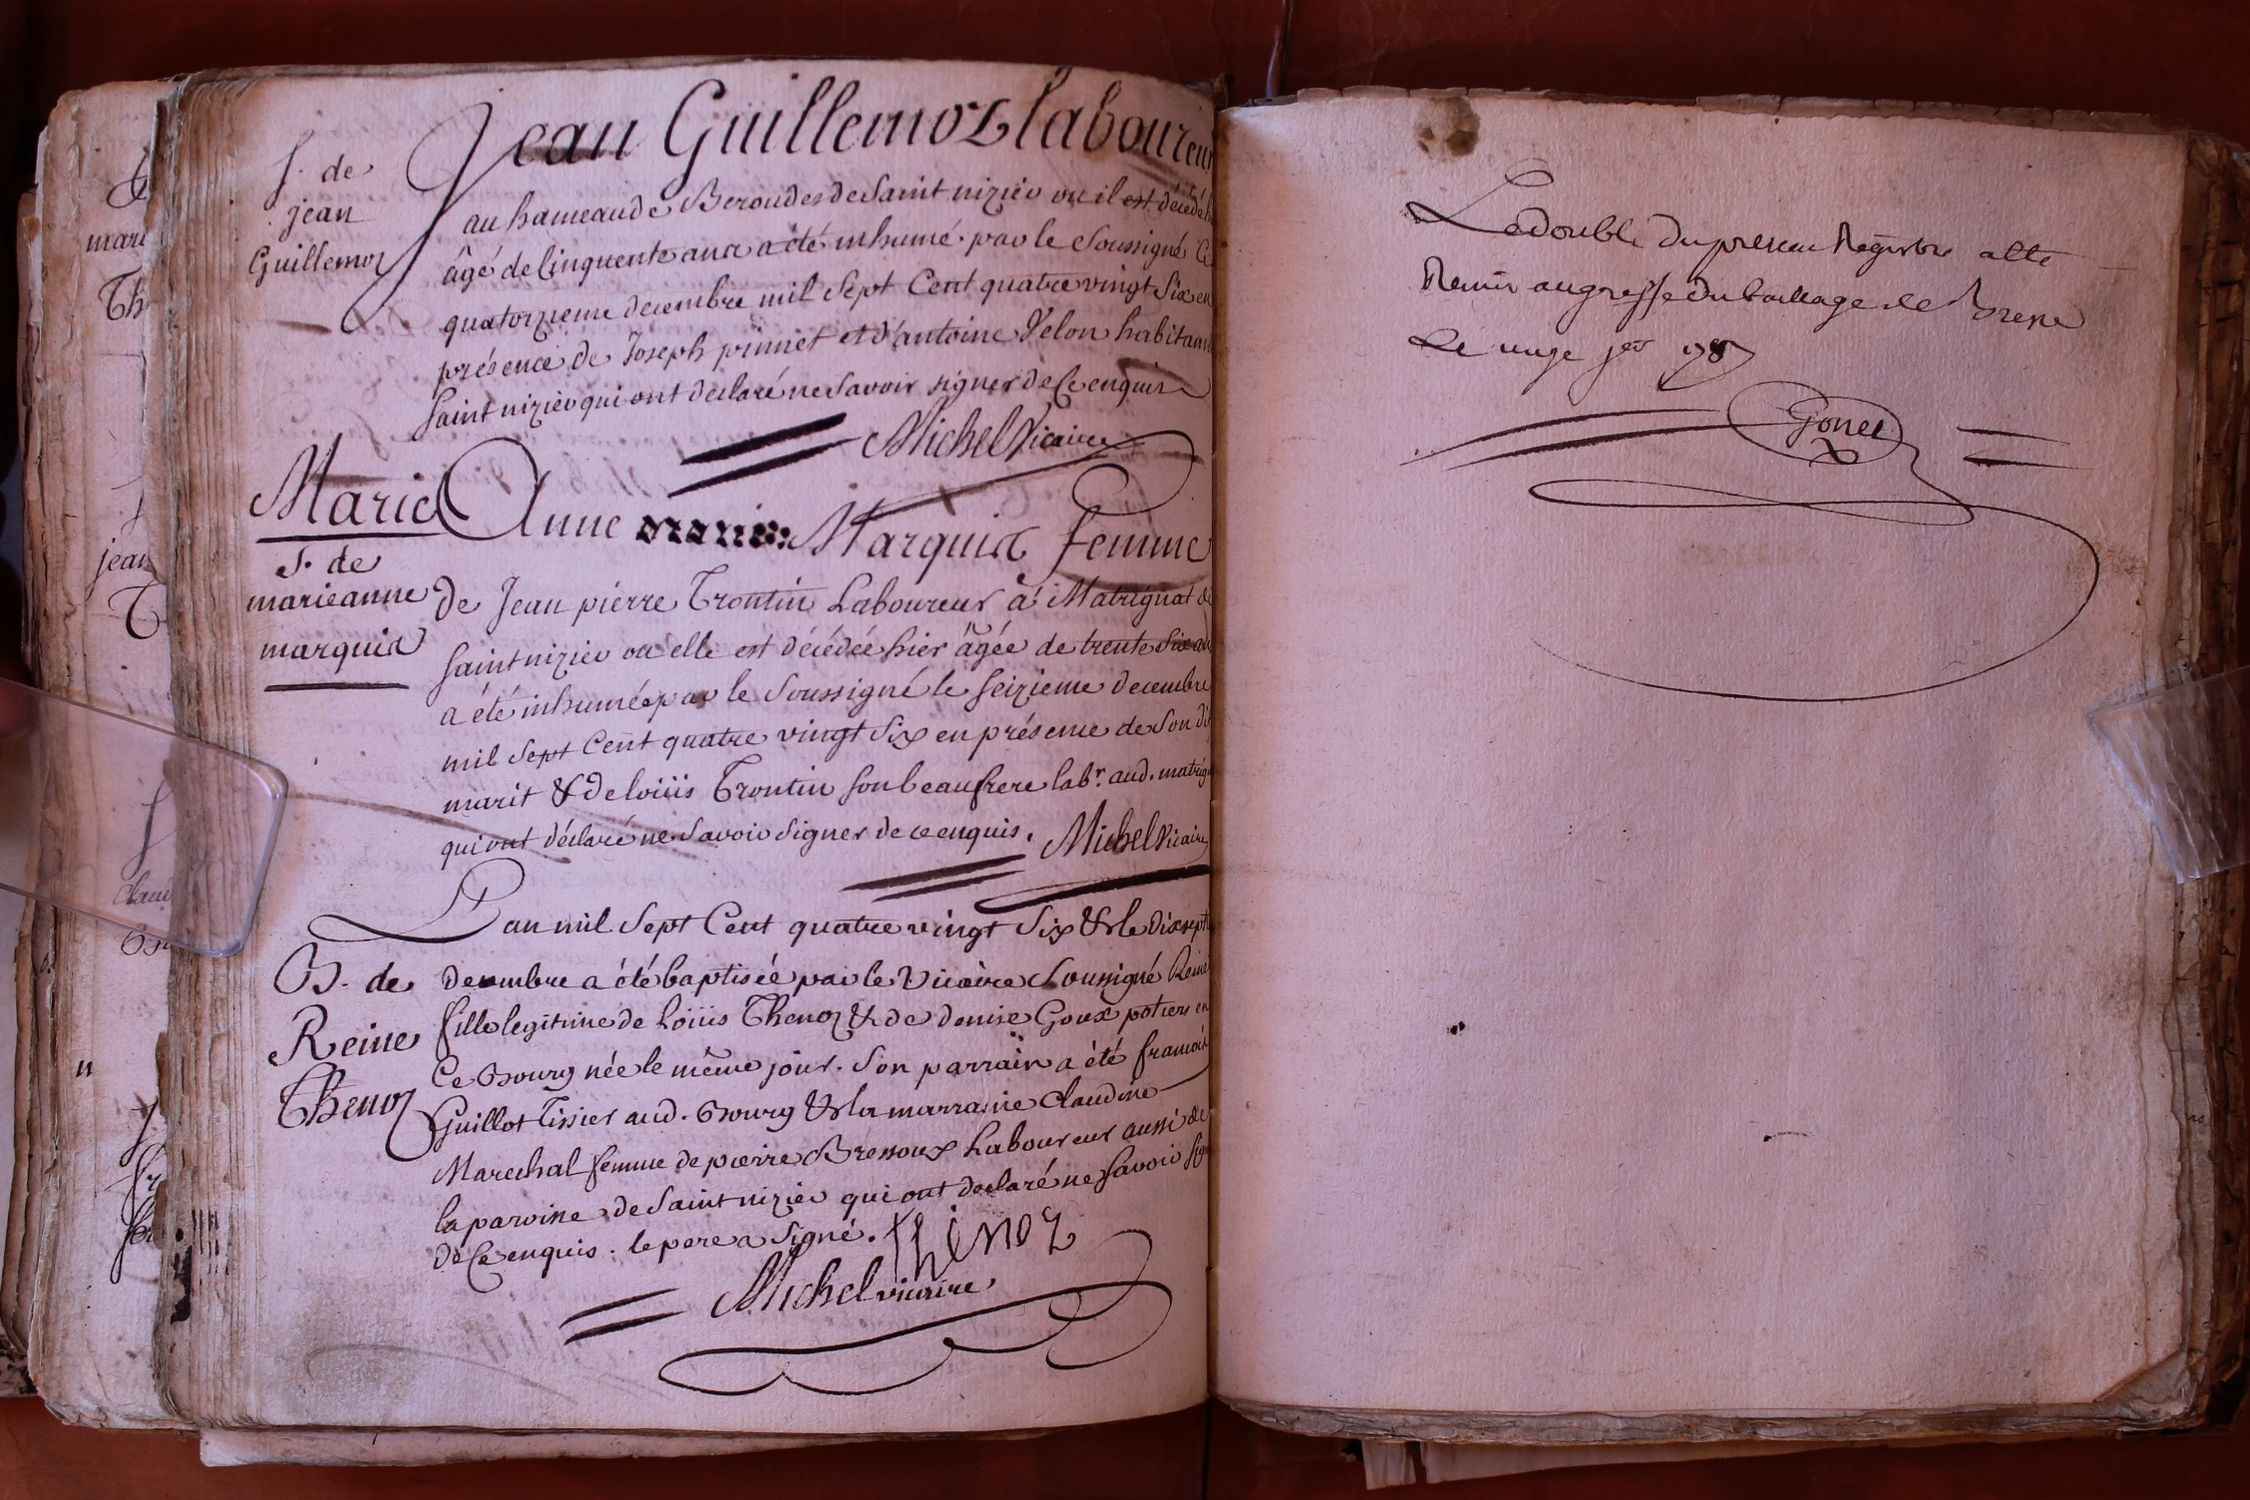 S. de
jean
Guillemoz
Jean Guillemoz laboureur
au hameau de Beroudes de Saint nizier ou il est décédé
âgé de Cinquente ans a été inhumé par le Soussigné
quatorzieme decembre mil Sept Cent quatre vingt Six en
présence de Joseph pinnet et d'antoine Velon habitan
Saint nizier qui ont déclaré ne Savoir signer de Ce enquis
Michel Vicaire
Marie Anne Marquis femme
S. de
marieanne
marquis
de Jean pierre Trontin Laboureur à Matrignat de
Saint nizier ou elle est décédée hier âgée de trente Six
a été inhumée par le Soussigné le Seizieme decembre
mil Sept Cent quatre vingt Six en présence de Son
marit & de loüis Trontin Son beaufrere labr. aud. matrig
qui ont déclaré ne Savoir Signer de ce enquis. Michel Vicaire
B. de
Reine
Thenoz
L'an mil Sept Cent quatre vingt Six & le Dixsept
Decembre a été baptisée par le Vicaire Soussigné Reine
fille legitime de Loüis Thenoz & de denise Goux potiers en
Ce Bourg née le même jour. Son parrain a été francois
Guillot Tissier aud. Bourg & la marraine Claudine
Marechal femme de pierre Bressoux Laboureur aussi de
la paroisse de Saint nizier qui ont declaré ne Savoir Sign
de Ce enquis. le pere a Signé. thenoz
Michel vicaire
Le double du present Registre a été
Remis au greffe du bailliage de Bresse
Le unze jer 1787
Gonet
mari
Th
jean
T
Clau